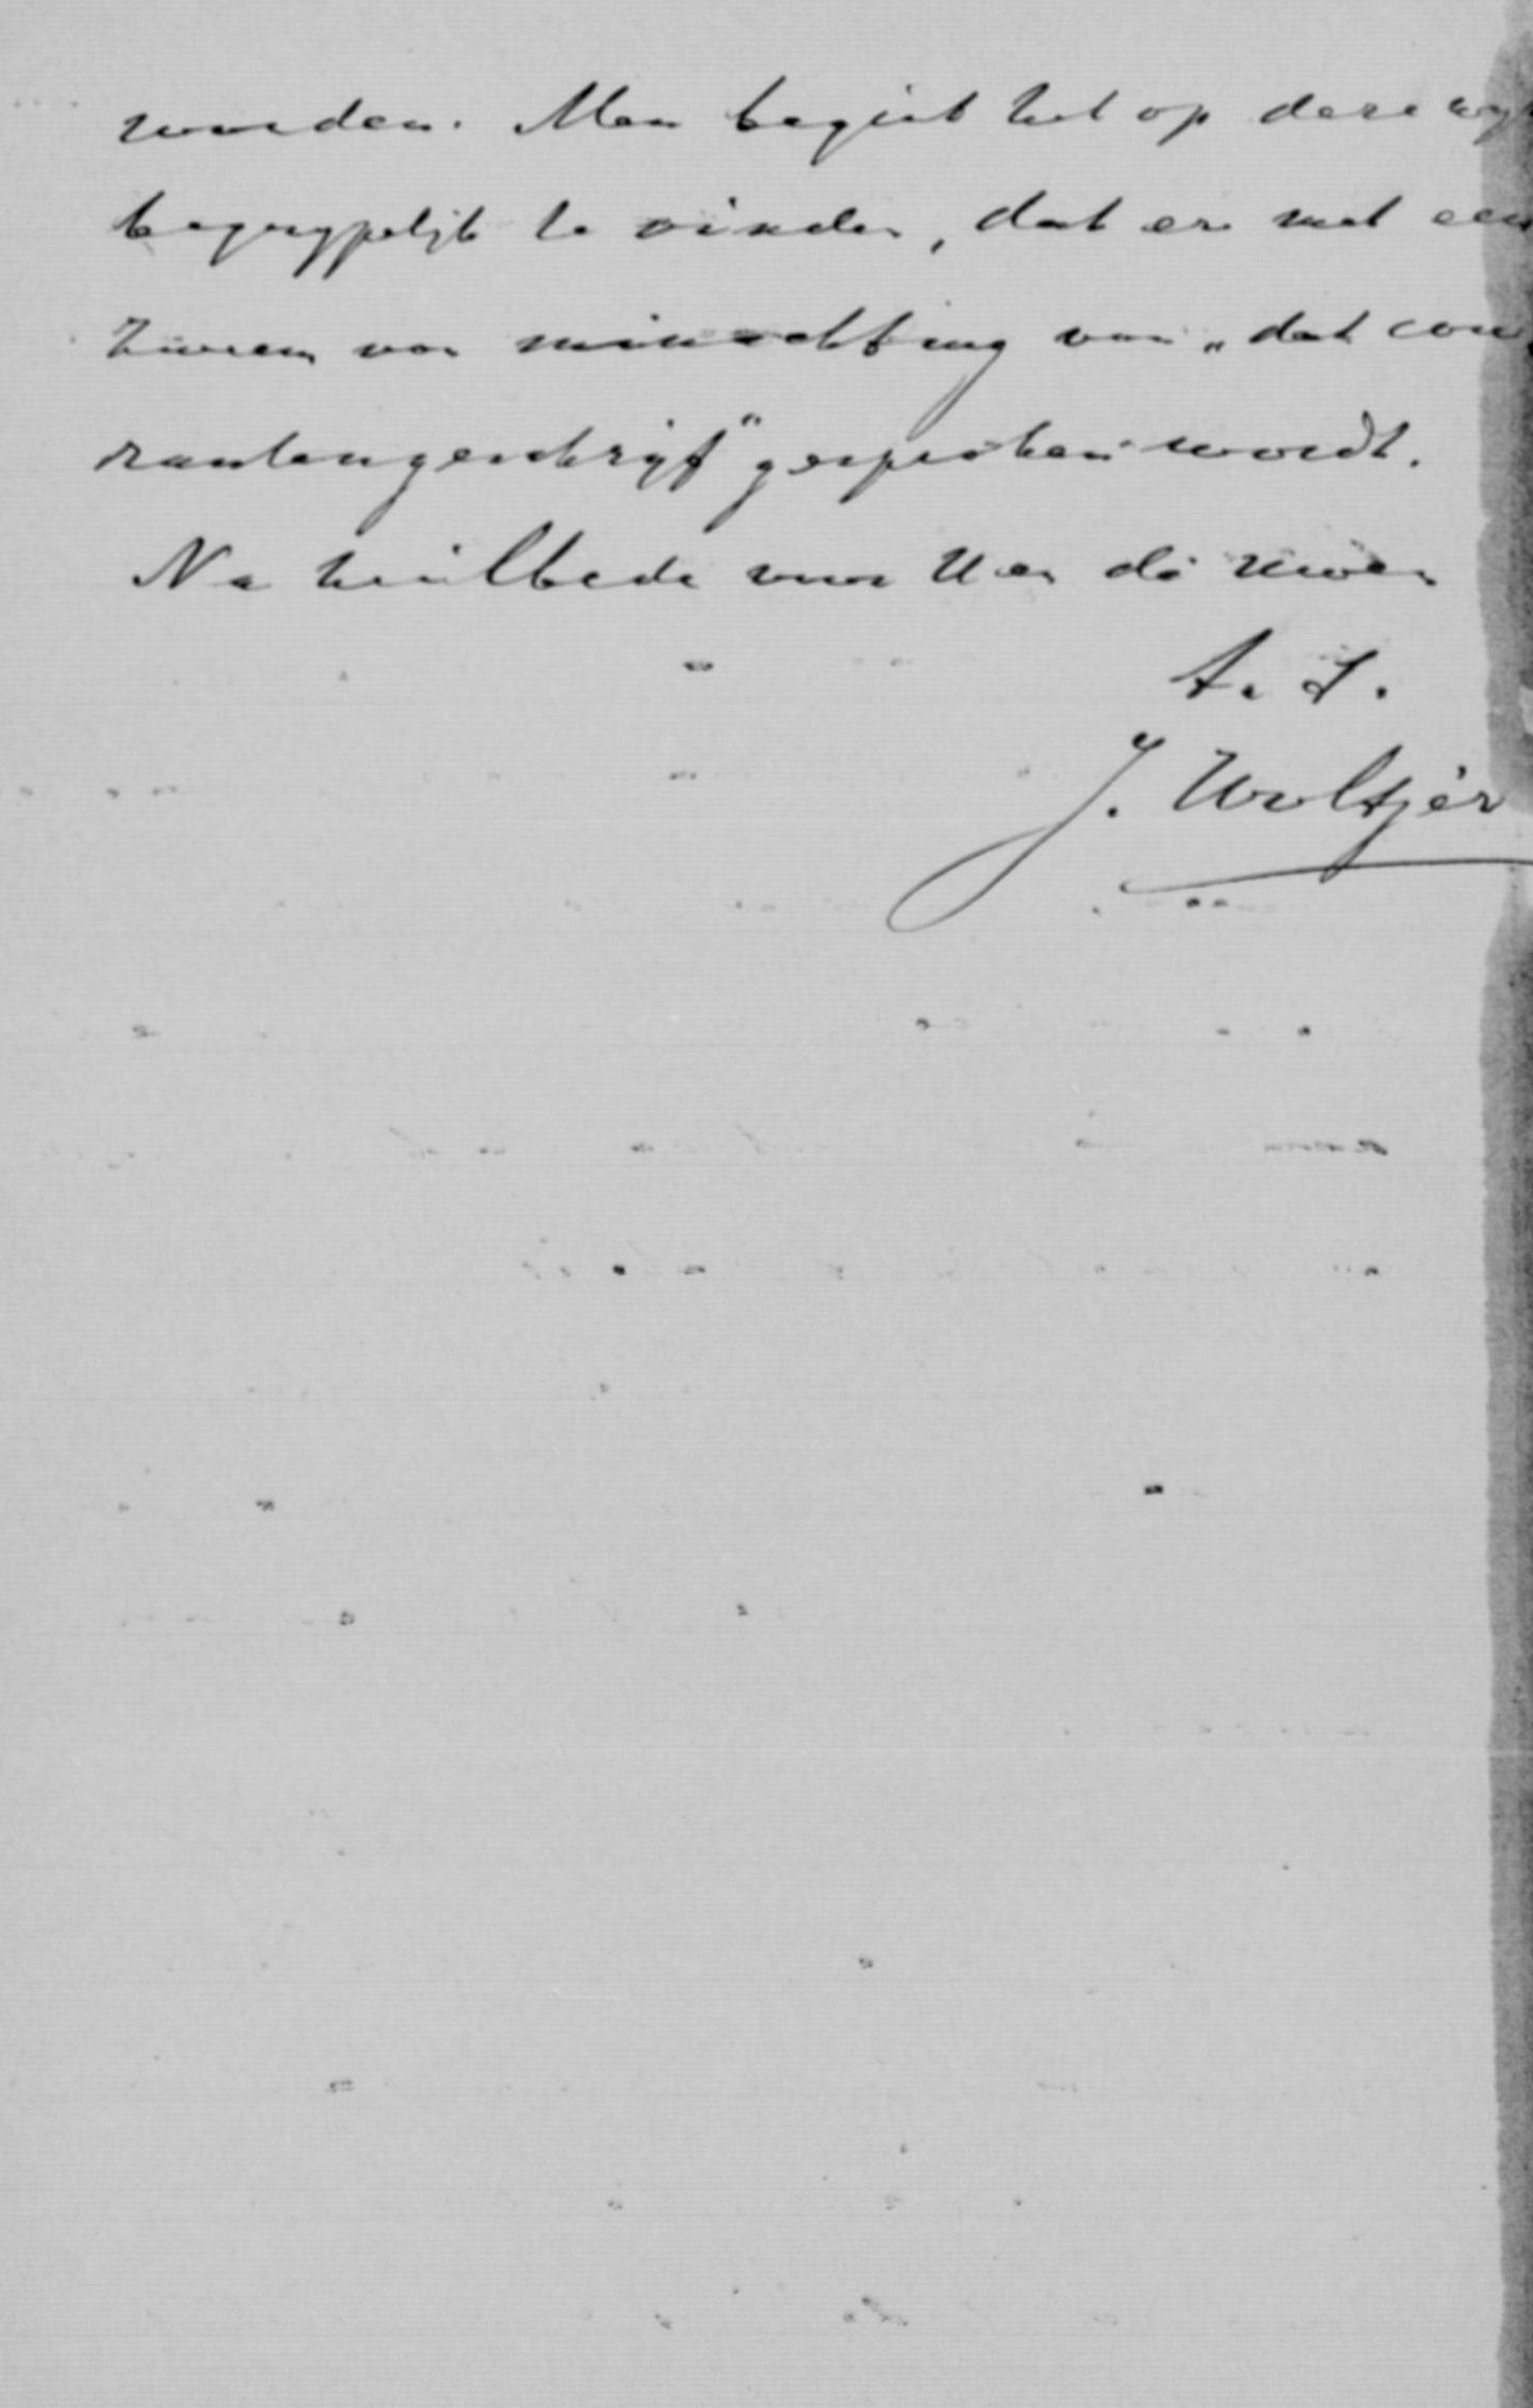 worden. Men begint het op deze wijz
begrijpelijk te vinden, dat er met een
zweem van minachting van „dat cou-
rantengeschrijf" gesproken wordt.
Na heilbede voor U en de uwen
t. t.
J. Woltjer